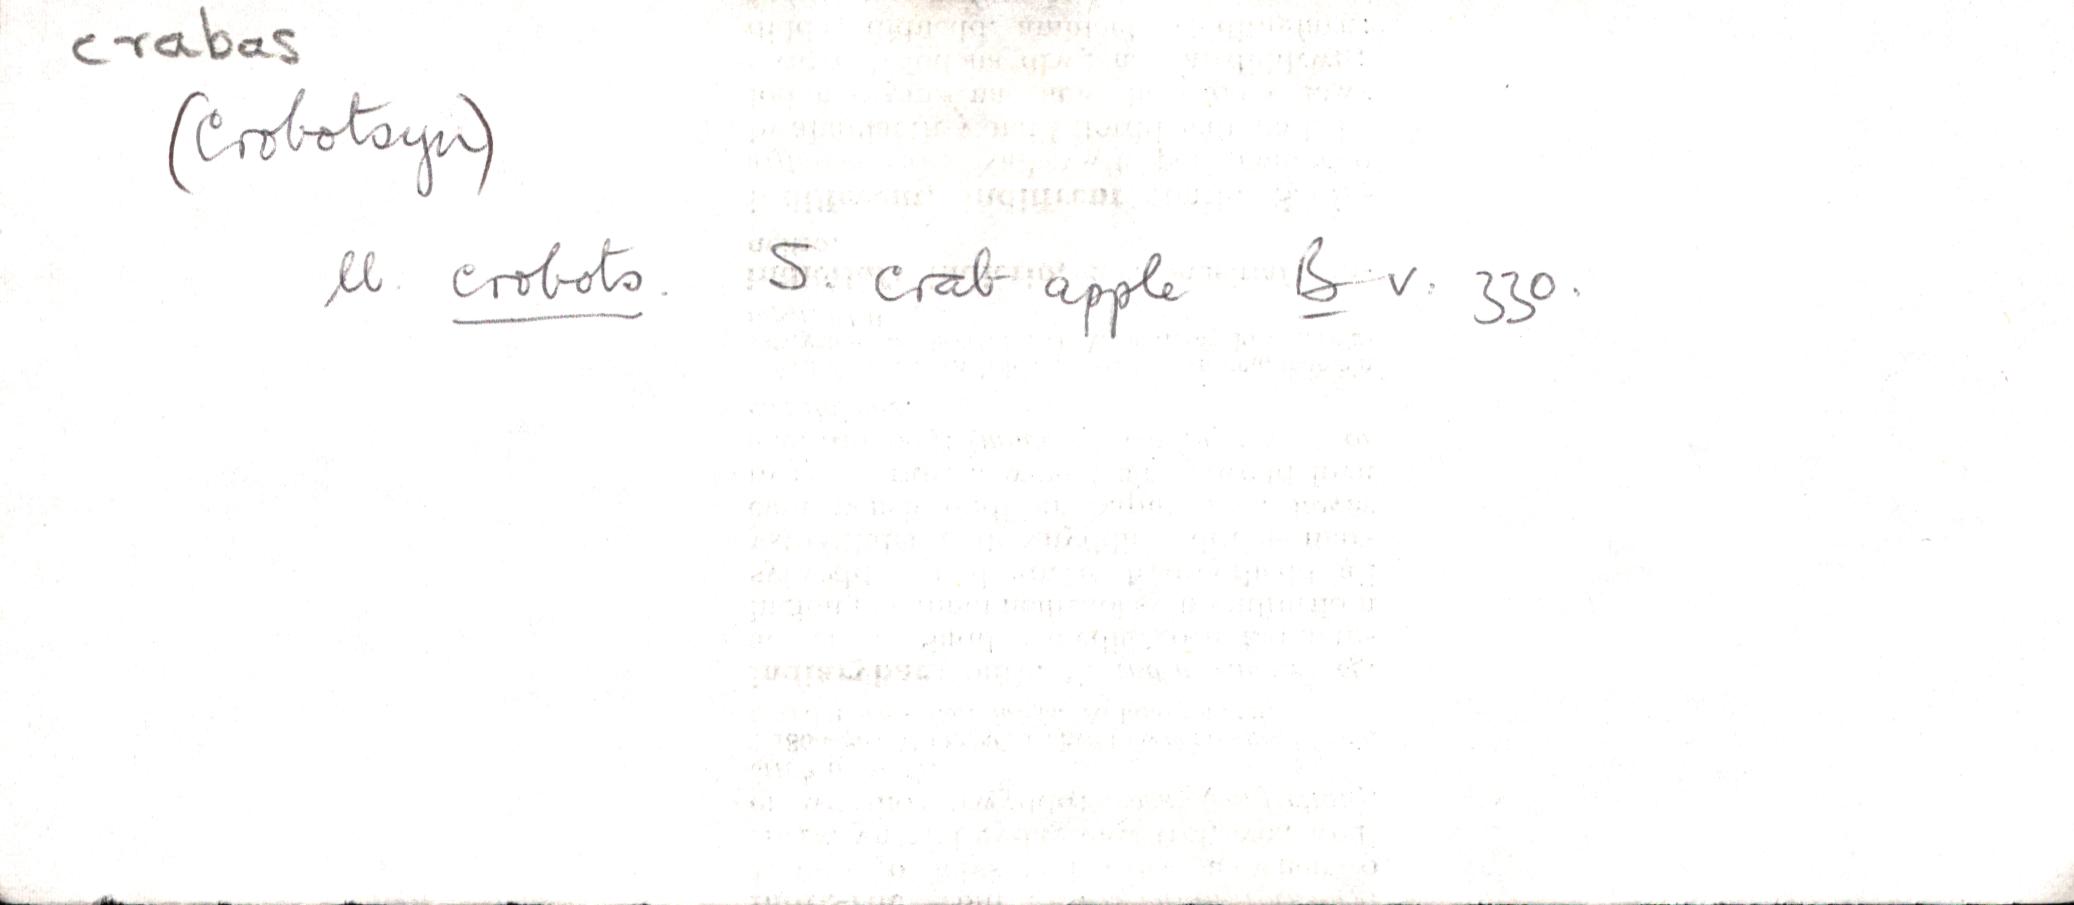 crabas
(Crobotsyn)
ll. crobots. S. crab apple B v. 330.